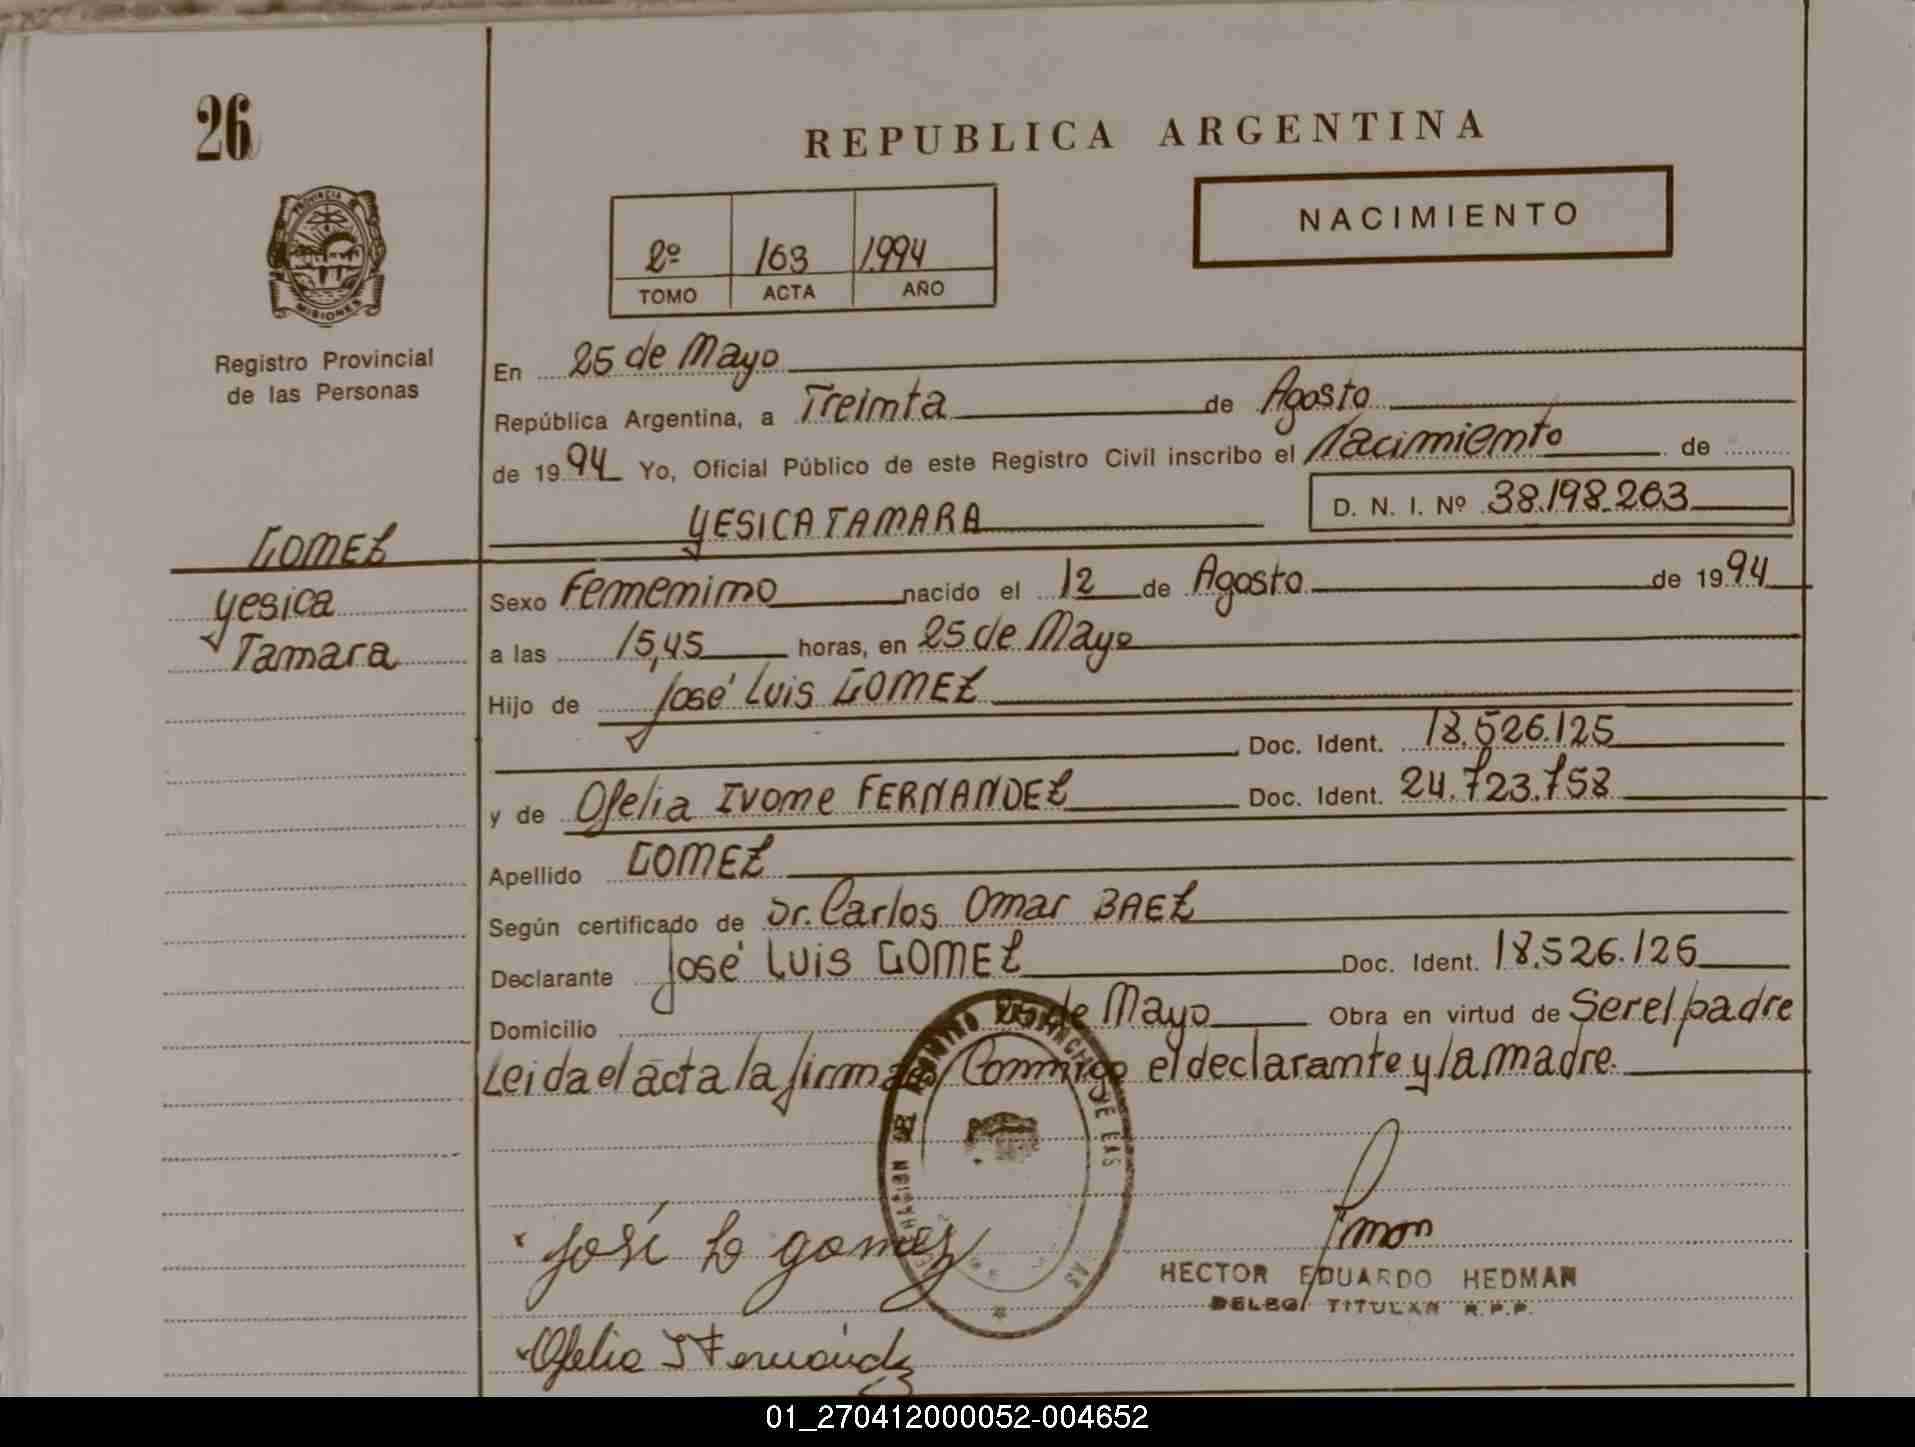 26
REPUBLICA ARGENTINA
NACIMIENTO
2º 163 1994
TOMO ACTA AÑO
PROVINCIA DE
MISIONES
Registro Provincial
de las Personas
En 25 de Mayo
República Argentina, a Treinta de Agosto
de 1994 Yo, Oficial Público de este Registro Civil inscribo el Nacimiento de
YESICA TAMARA D. N. I. Nº 38.198.263
GOMEZ
Yesica
Tamara
Sexo Femenino nacido el 12 de Agosto de 1994
a las 15,45 horas, en 25 de Mayo
Hijo de José Luis GOMEZ
Doc. Ident. 18.526.125
y de Ofelia Ivone FERNANDEZ Doc. Ident. 24.723.758
Apellido GOMEZ
Según certificado de Dr. Carlos Omar BAEZ
Declarante José Luis GOMEZ Doc. Ident. 18.526.125
Domicilio 25 de Mayo Obra en virtud de Ser el padre
Leida el acta la firman Conmigo el declarante y la madre.
José L gomez
HECTOR EDUARDO HEDMAN
DELEG. TITULAR R.P.P.
Ofelia I Fernández
01_270412000052-004652